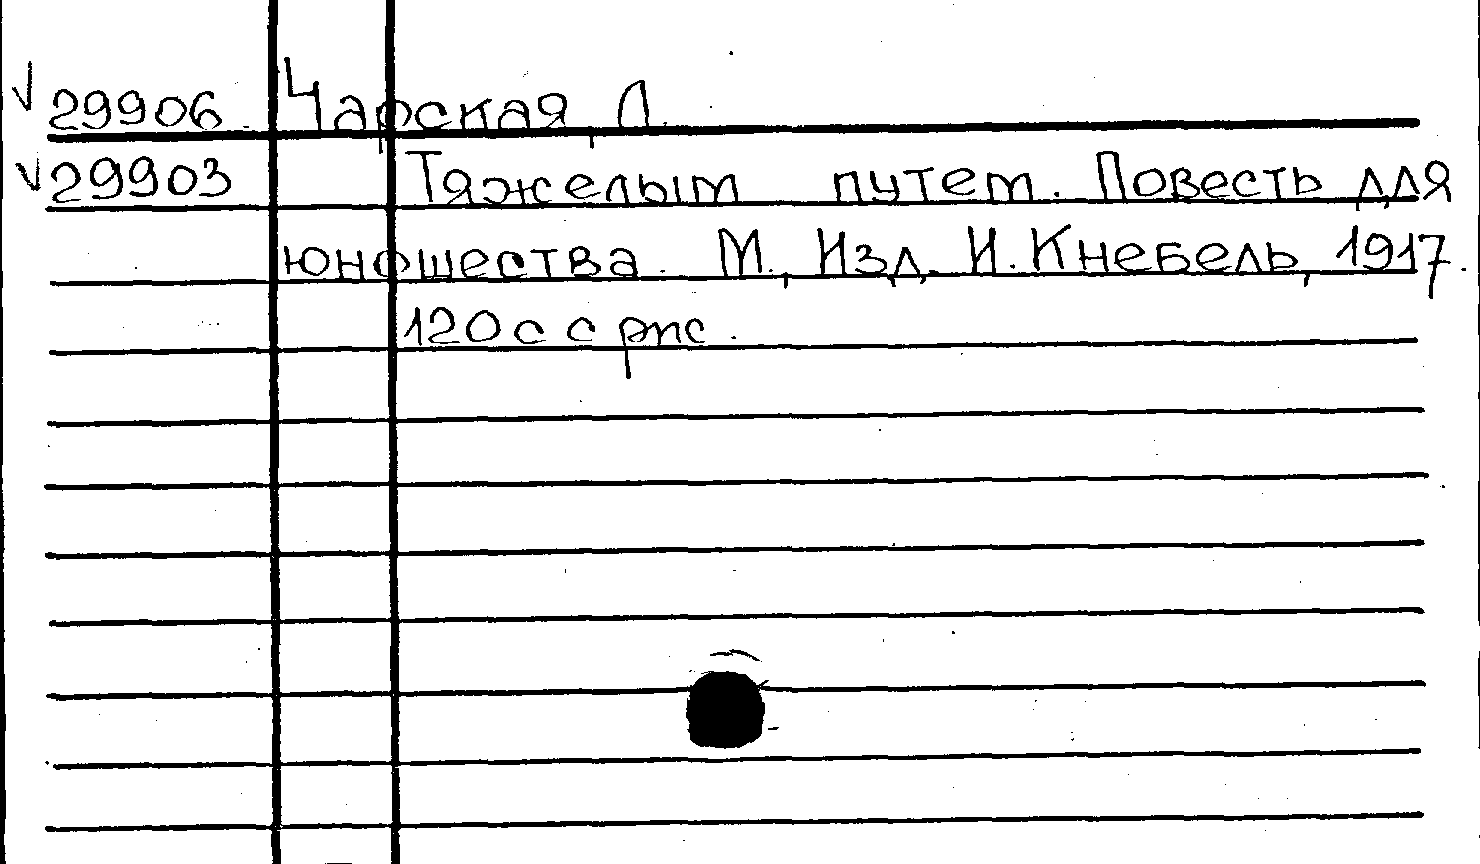 √ 29906. Чарская, Л.
√ 29903 Тяжелым путем. Повесть для
юношества. М., Изд. И. Кнебель, 1917.
120 с с рис.